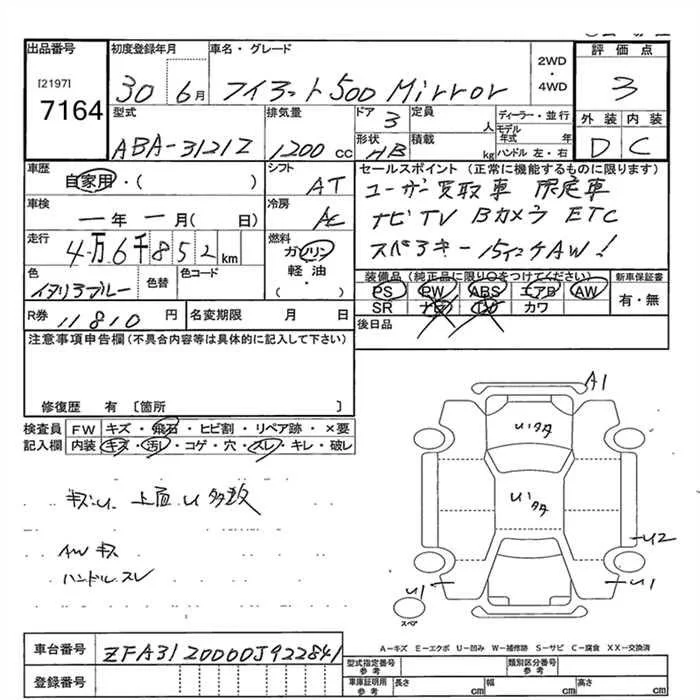 出品番号 初度登録年月 車名・グレード 2WD・4WD 評価点
[2197]
7164
30 6月 フィアット500 Mirror 3
型式 排気量 ドア 3 定員 人 ディーラー・並行 外装 内装
モデル年式 年
ABA-31212 1200cc 形状 HB 積載 kg ハンドル 左・右 D C
車歴 自家用・( ) シフト AT セールスポイント(正常に機能するものに限ります)
ユーザー買取車 限定車
車検 ー年ー月( 日) 冷房 AC ナビTV Bカメラ ETC
走行 4万6千852km 燃料 ガソリン 軽・油 ( ) スペアキー 15インチAW!
色 イタリアブルー 色替 色コード
装備品(純正品に限り○をつけてください) 新車保証書
PS PW ABS エアB AW 有・無
SR ナビ TV カワ
R券 11810円 名変期限 月 日 後日品
注意事項申告欄(不具合内容等は具体的に記入して下さい)
修復歴 有 〔箇所 〕
検査員 FW キズ・飛石・ヒビ割・リペア跡・×要
記入欄 内装 キズ・汚れ・コゲ・穴・スレ・キレ・破レ
A1
Uい多
キズU. 上面U多数
Uい多
AWキズ
U2
ハンドルスレ
U1 U1
スペア
A−キズ E−エクボ U−凹み W−補修跡 S−サビ C−腐食 XX−交換済
車台番号 ZFA3120000J922841
登録番号
型式指定番号 参考 類別区分番号 参考
車庫証明用 参考 長さ cm 幅 cm 高さ cm